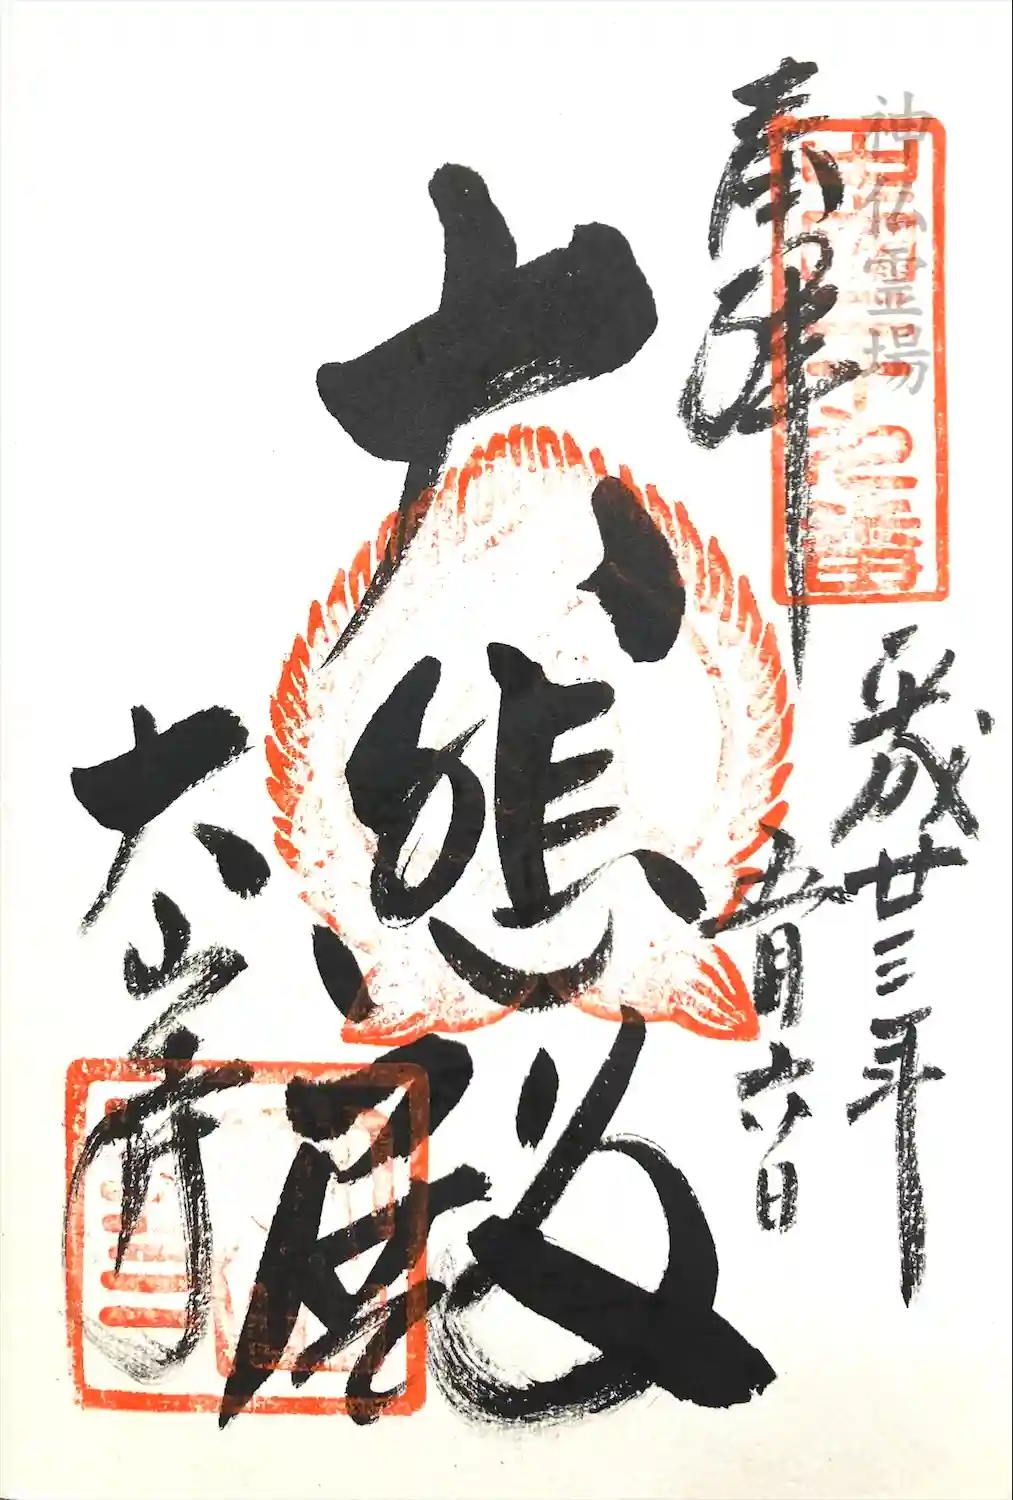 神仏霊場
奉拝
平成廿三年
五月六日
大悲殿
山寺